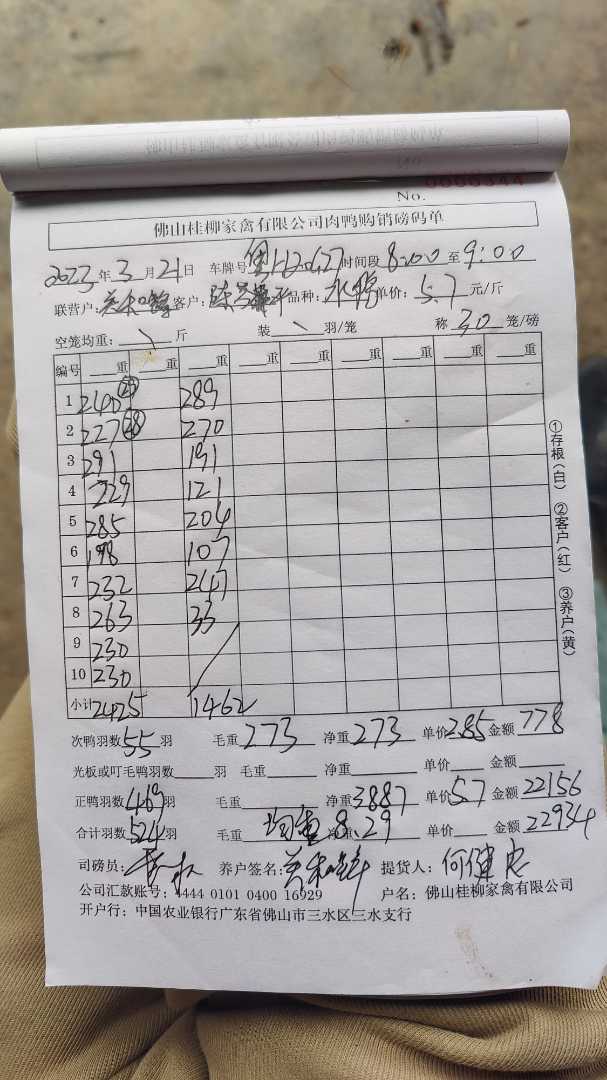 No. 0000344
佛山桂柳家禽有限公司肉鸭购销磅码单
2023年3月21日 车牌号 时间段8:00至9:00
联营户: 客户: 品种: 单价:5.7元/斤
空笼均重:\斤 装\羽/笼 称30笼/磅
编号 重 重 重 重 重 重 重 重 重
1 240 289
2 227 28 270
3 291 191
4 229 121
5 285 204
6 198 107
7 232 247
8 263 33
9 230
10 230
小计 2425 1462
次鸭羽数55羽 毛重273 净重273 单价2.85 金额778
光板或叮毛鸭羽数 羽 毛重 净重 单价 金额
正鸭羽数469羽 毛重 净重3887 单价5.7 金额22156
合计羽数524羽 毛重 均重8.29 净重 单价 金额22934
司磅员: 养户签名: 提货人:何健忠
公司汇款账号:4444 0101 0400 16929 户名:佛山桂柳家禽有限公司
开户行:中国农业银行广东省佛山市三水区三水支行
①存根(白) ②客户(红) ③养户(黄)